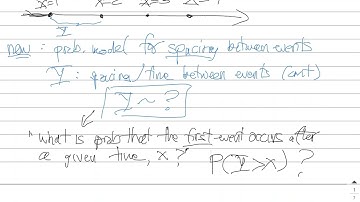 x=1 x=2 x=3
Y
new: prob. model for spacing between events
Y: spacing/time between events (cont)
Y ~ ?
"What is prob that the first event occurs after
a given time, x?" P(Y>x) ?